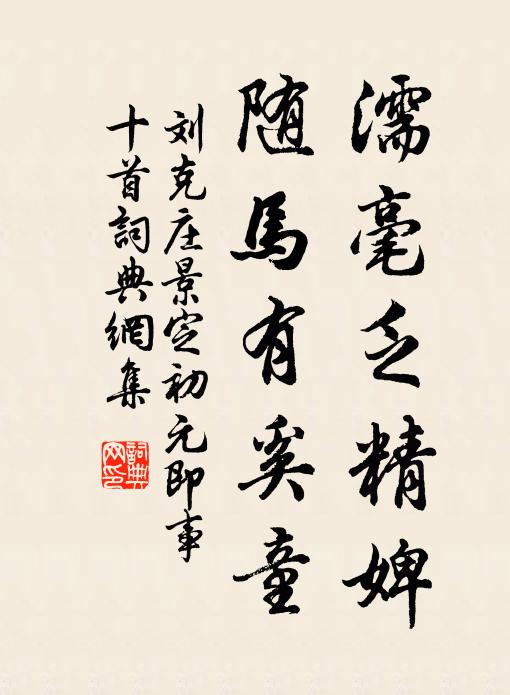 濡毫乏精婢
随馬有奚童
刘克庄景定初元即事
十首詞典網集
詞典
网印